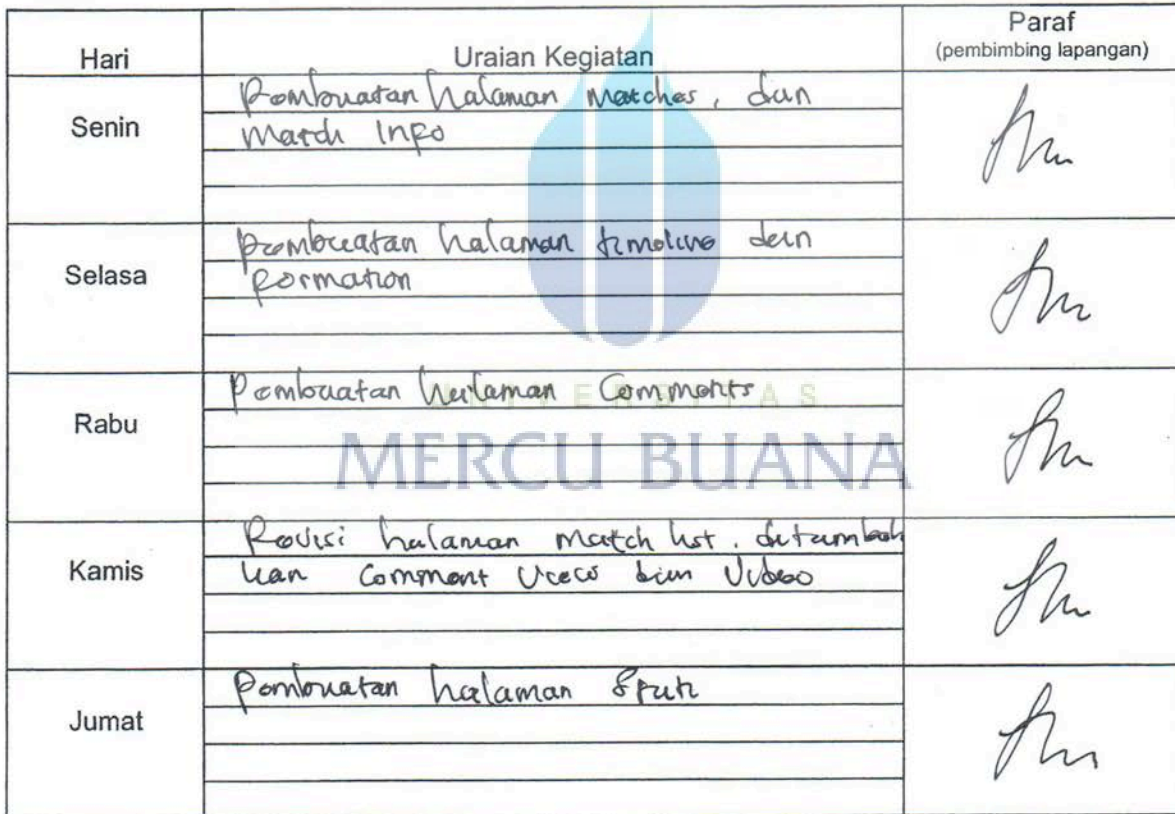 Hari
Uraian Kegiatan
Paraf
(pembimbing lapangan)
Senin
Pembuatan halaman matches, dan
match Info
Selasa
pembuatan halaman timeline dan
formation
UNIVERSITAS
MERCU BUANA
Rabu
Pembuatan halaman Comments
Kamis
Revisi halaman match list. ditambah
kan Comment View dan Video
Jumat
Pembuatan halaman